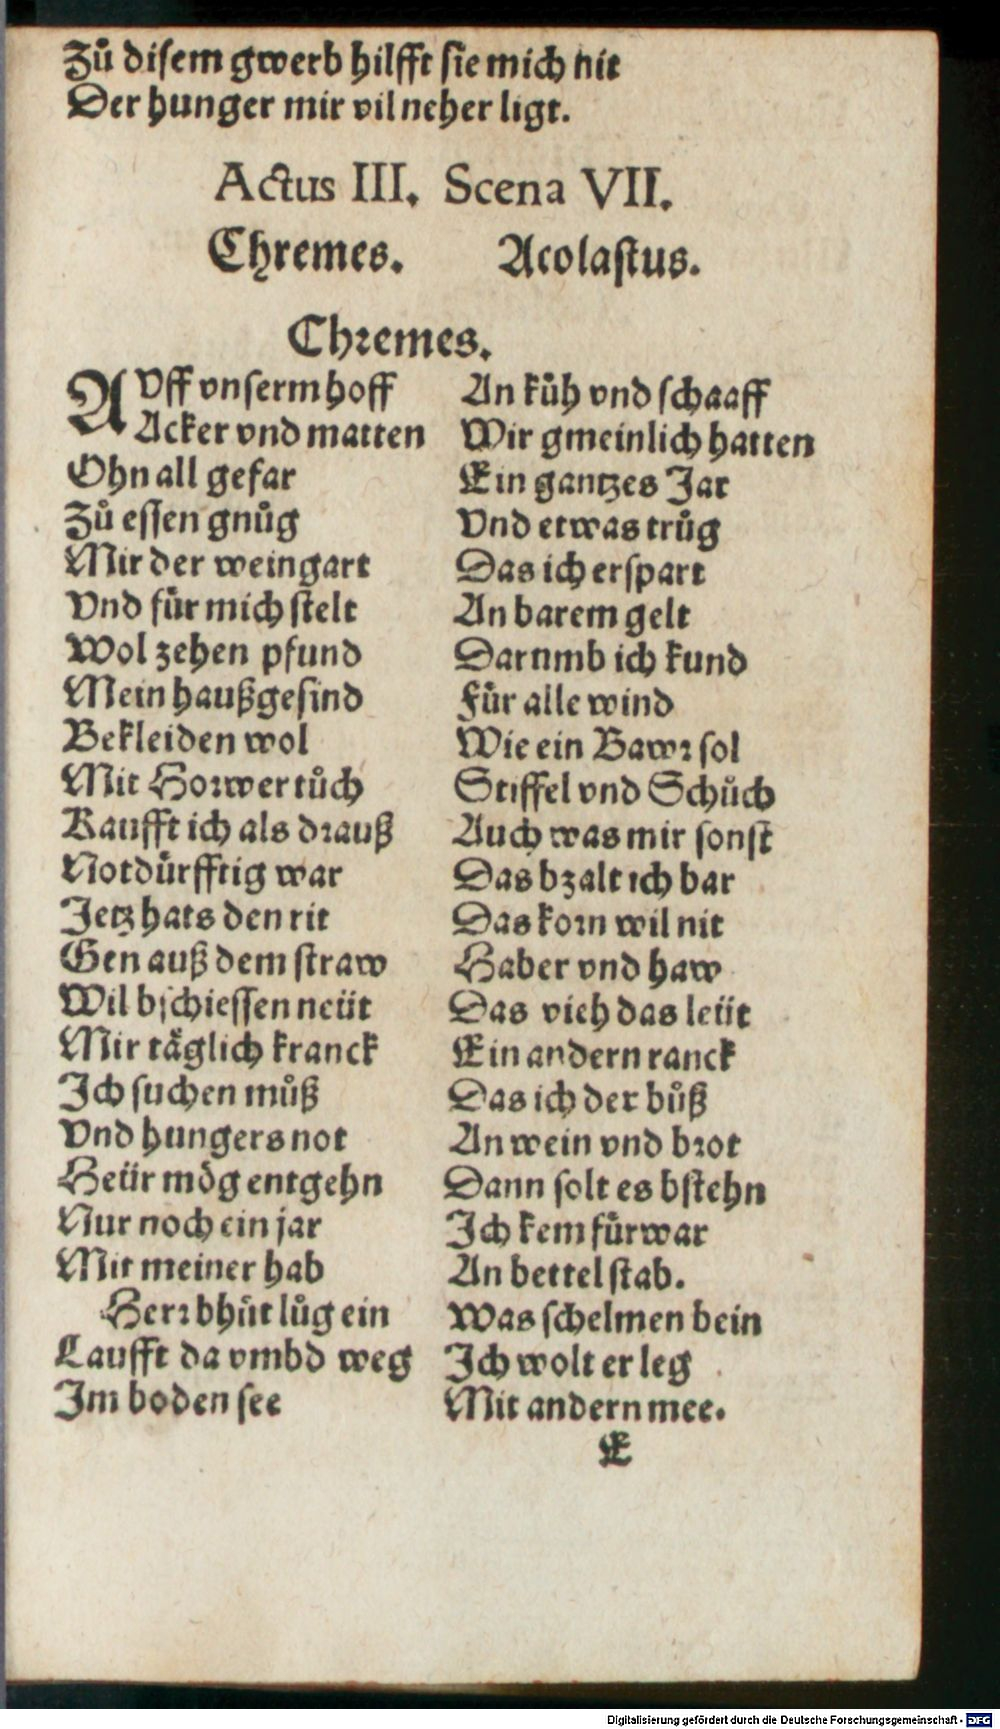 Zů disem gwerb hilfft sie mich nit
Der hunger mir vil neher ligt.
Actus III. Scena VII.
Chremes. Acolastus.
Chremes.
AVff vnserm hoff An küh vnd schaaff
Acker vnd matten Wir gmeinlich hatten
Ohn all gefar Ein gantzes Jar
Zů essen gnůg Vnd etwas trůg
Mir der weingart Das ich erspart
Vnd für mich stelt An barem gelt
Wol zehen pfund Darnmb ich kund
Mein haußgesind Für alle wind
Bekleiden wol Wie ein Bawr sol
Mit Horwer tůch Stiffel vnd Schůch
Kaufft ich als drauß Auch was mir sonst
Notdürfftig war Das bzalt ich bar
Jetz hats den rit Das korn wil nit
Gen auß dem straw Haber vnd haw
Wil bschiessen neüt Das vieh das leüt
Mir täglich kranck Ein andern ranck
Ich suchen můß Das ich der bůß
Vnd hungers not An wein vnd brot
Heür mög entgehn Dann solt es bstehn
Nur noch ein jar Ich kem fürwar
Mit meiner hab An bettel stab.
Herr bhüt lůg ein Was schelmen bein
Laufft da vmbd weg Ich wolt er leg
Im boden see Mit andern mee.
E
Digitalisierung gefördert durch die Deutsche Forschungsgemeinschaft - DFG